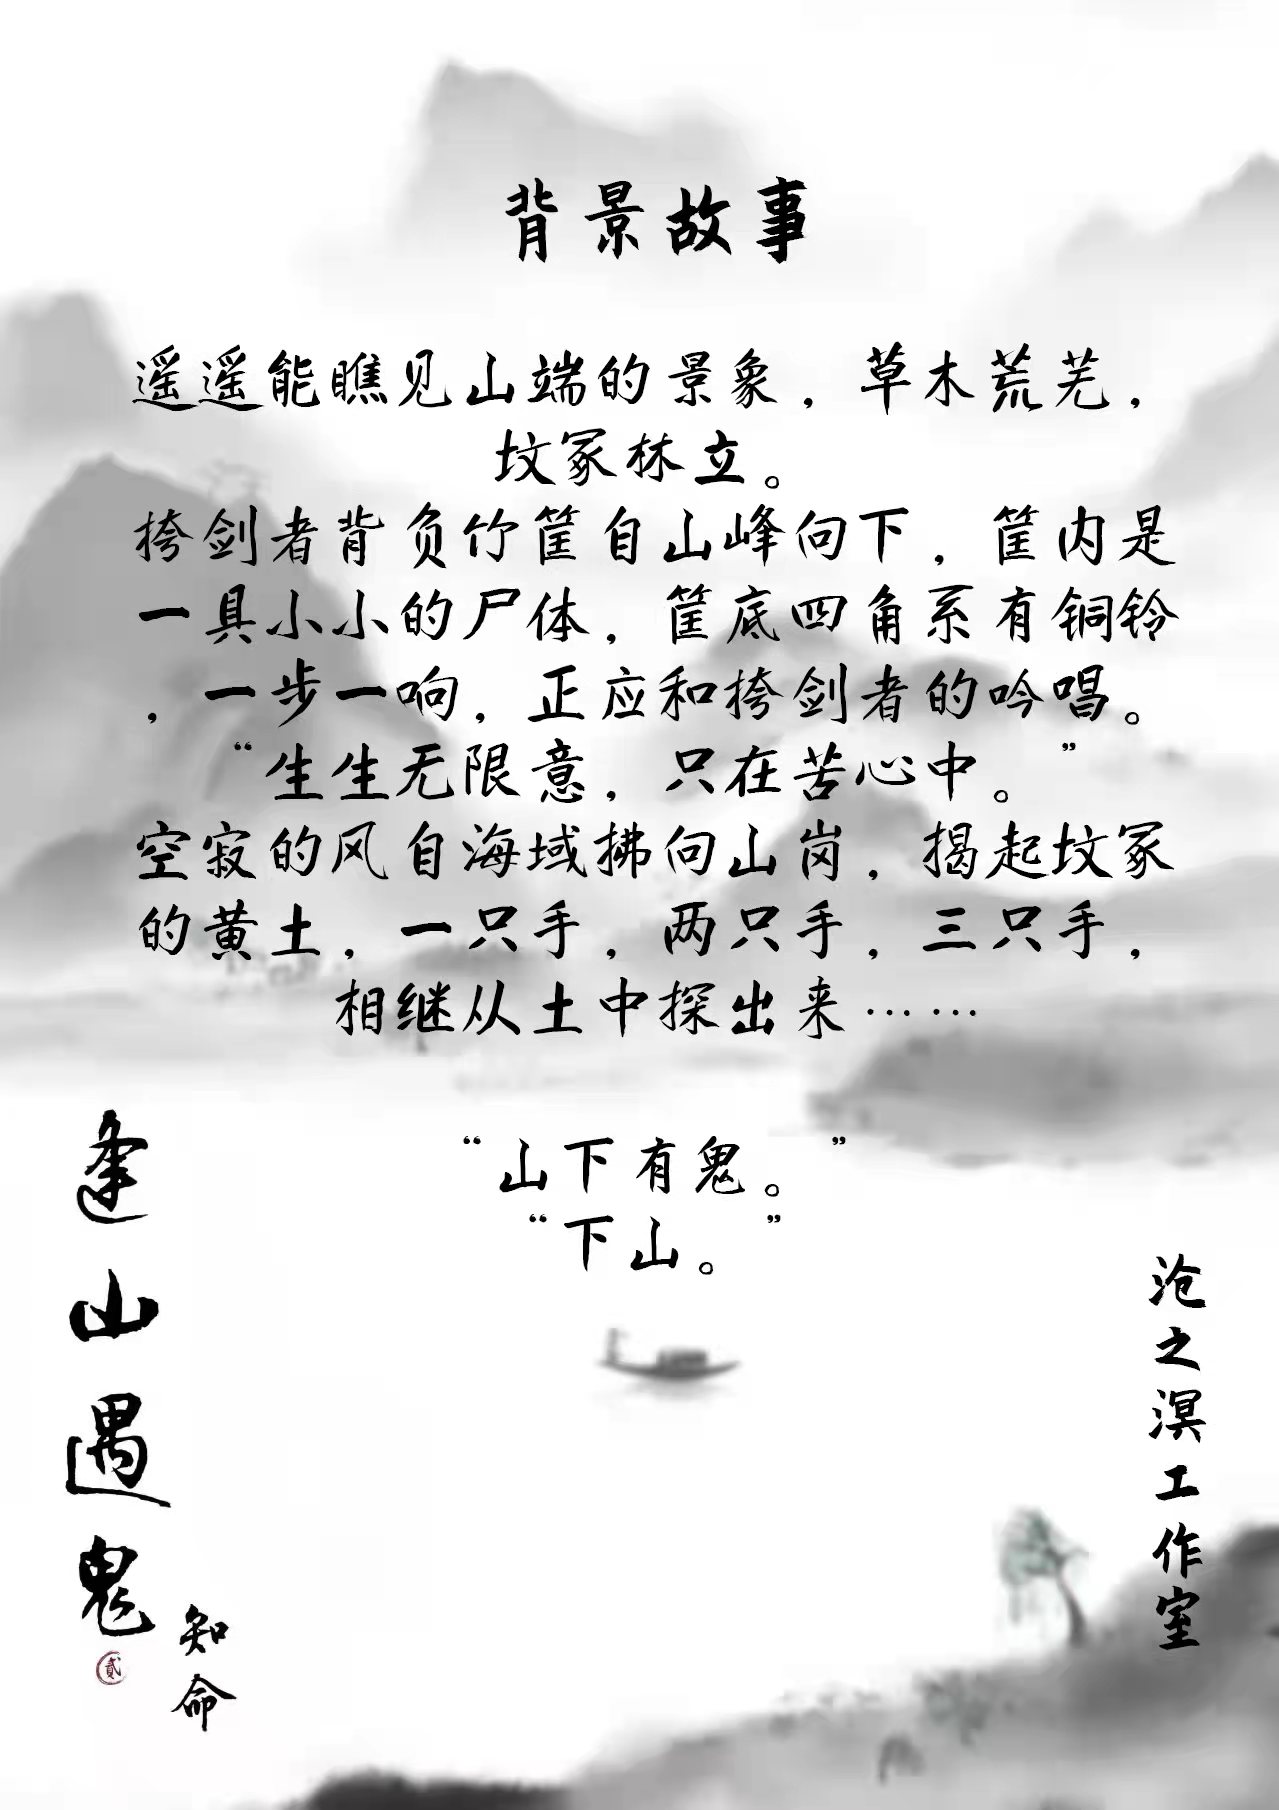 背景故事
遥遥能瞧见山端的景象，草木荒芜，
坟冢林立。
挎剑者背负竹筐自山峰向下，筐内是
一具小小的尸体，筐底四角系有铜铃
，一步一响，正应和挎剑者的吟唱。
“生生无限意，只在苦心中。”
空寂的风自海域拂向山岗，揭起坟冢
的黄土，一只手，两只手，三只手，
相继从土中探出来……
“山下有鬼。”
“下山。”
逢山遇鬼
贰
知命
沧之溟工作室